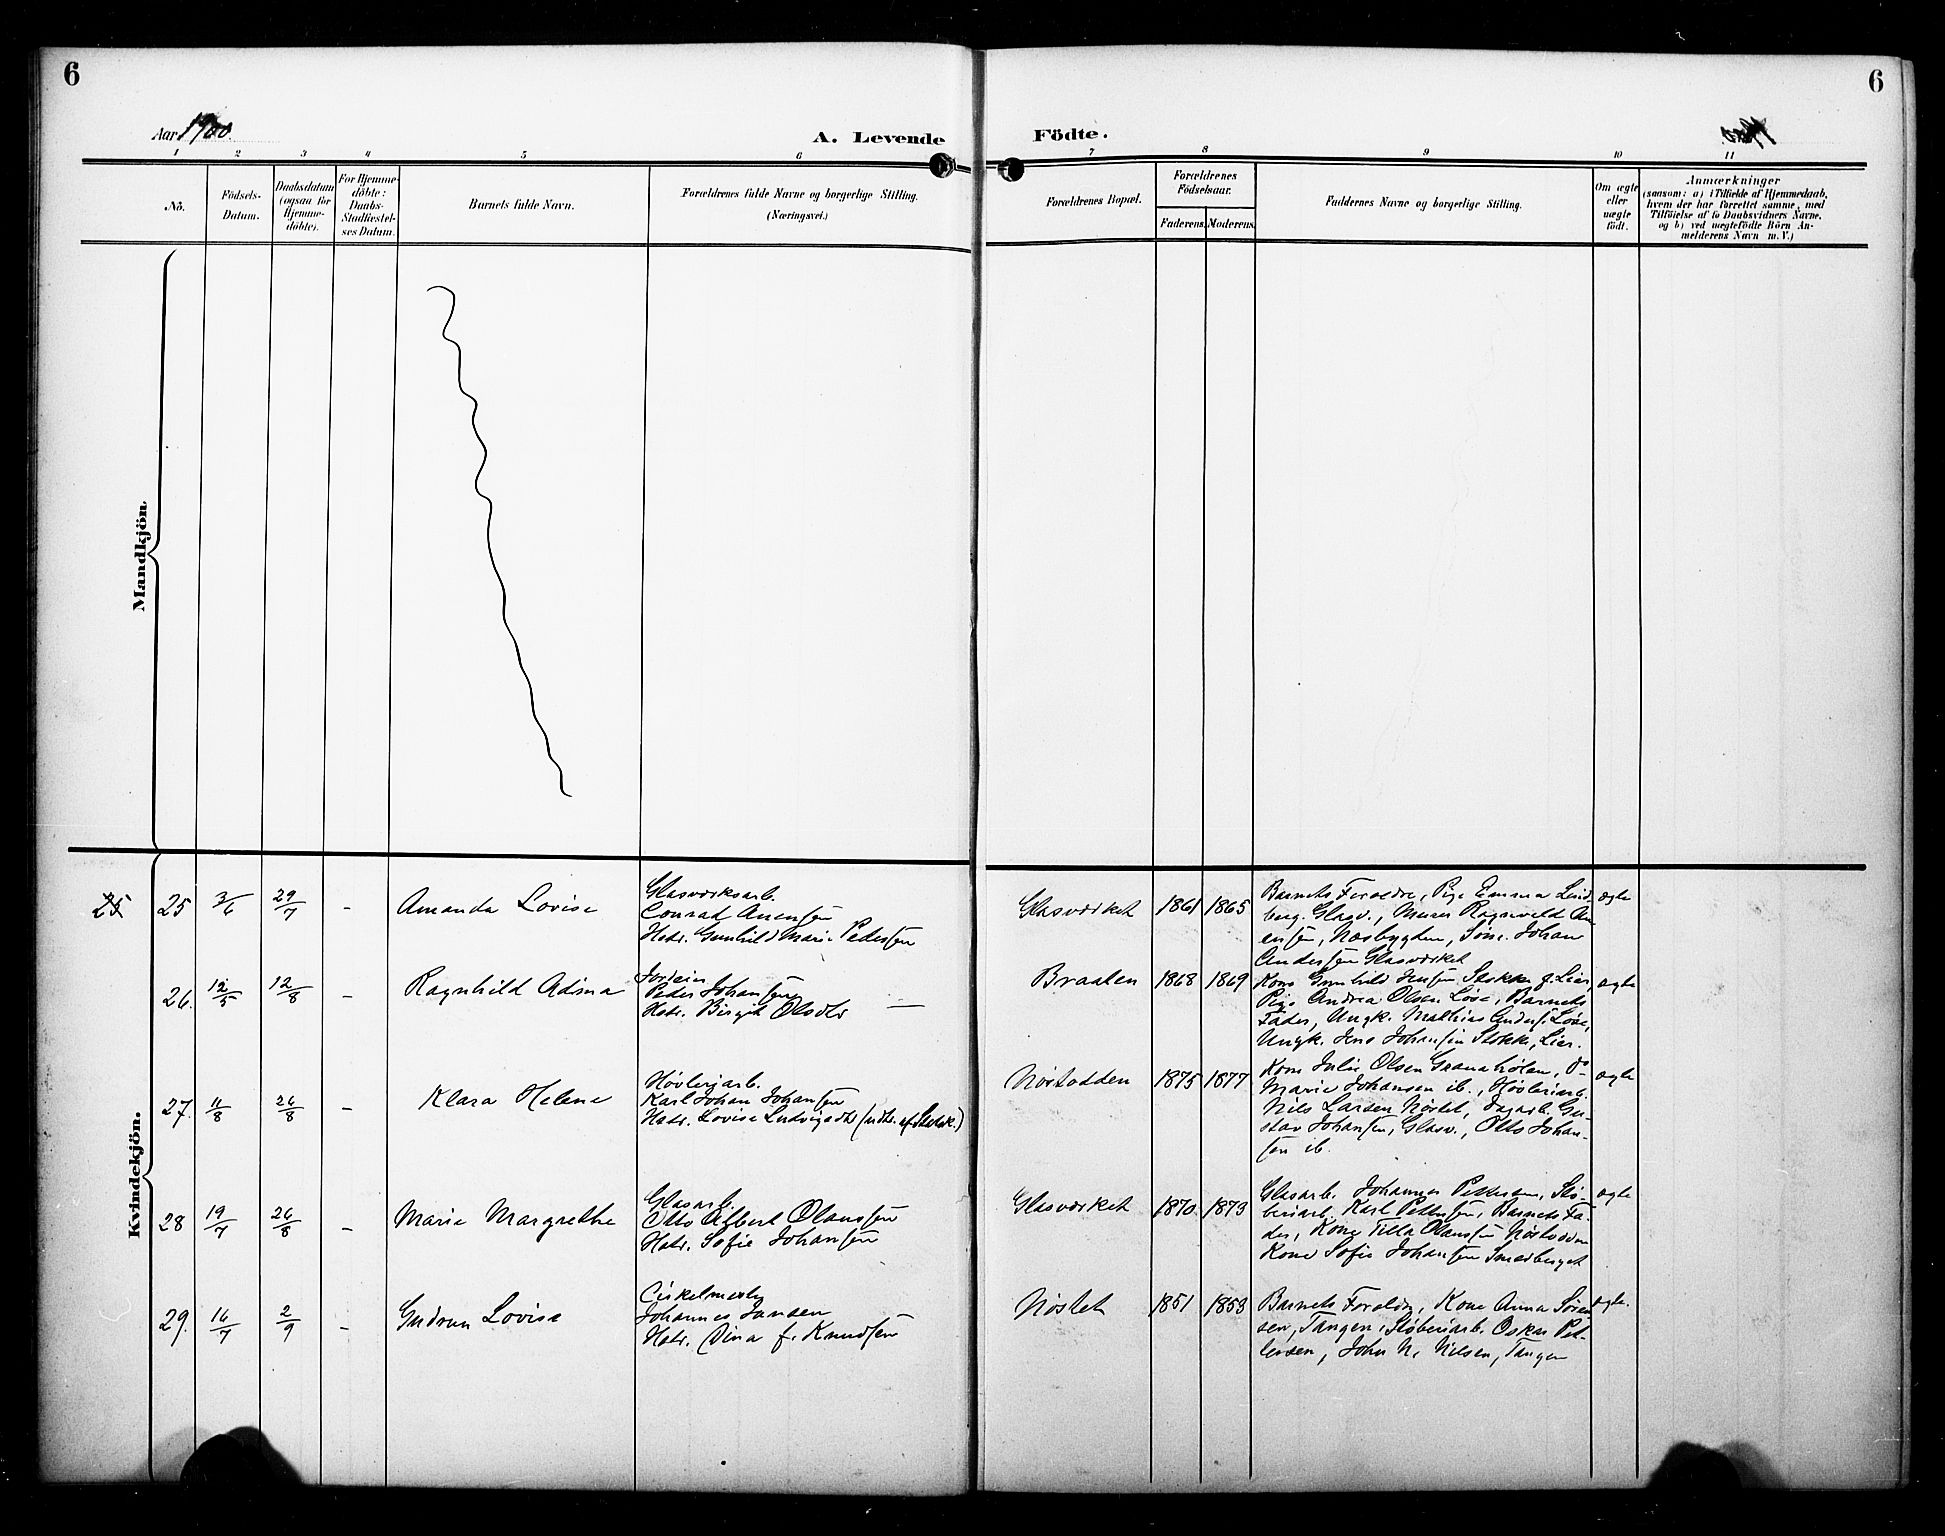 6
6
Aar 1900.
A. Levende
Födte.
1900
1 2 3 4 5 6 7 8 9 10 11
No.
Födsels-
Datum.
Daabsdatum
(ogsaa for
Hjemme-
döbte).
For Hjemme-
döbte:
Daabs-
Stadfæstel-
ses Datum.
Barnets fulde Navn.
Forældrenes fulde Navne og borgerlige Stilling.
(Næringsvei.)
Forældrenes Bopæl.
Forældrenes
Födselsaar.
Faderens.
Moderens.
Faddernes Navne og borgerlige Stilling.
Om ægte
eller
uægte
födt.
Anmærkninger
(saasom: a) i Tilfælde af Hjemmedaab,
hvem der har forrettet samme, med
Tilföielse af to Daabsvidners Navne.
og b) ved uægtefödte Börn An-
melderens Navn m. V.)
Mandkjön.
Kvindekjön.
25
25
3/6
29/7
-
Amanda Lovise
Glasværksarb.
Conrad Arensen
Hstr. Gunhild Marie Pedersen
Glasværket
1861
1865
Barnets Foreldre, Pige Emma Lind-
berg. Glasv., Murer Ragnvald Ar-
ensen, Næsbygden, Sóm. Johan
Andersen Glasværket
ægte
26.
12/5
12/8
-
Ragnhild Adina
Peder Johansen
Hstr. Birgit Olsdtr
Braaten
1868
1869
Kone Gunhild Jensen Stokke g. Lier,
Pige Andrea Olsen Løse, Barnets
Fader, Ungk. Mathias Anders. Løse,
Ungk. Jens Johansen Stokke, Lier.
ægte
27.
11/8
26/8
-
Klara Helene
Høvleriarb.
Karl Johan Johansen
Hstr. Lovise Ludvigsdtr
Nøstodden
1875
1877
Kone Julie Olsen Granahølen, do
Marie Johansen ib., Høvleriarb.
Nils Larsen Nøstet, Dagarb. Gu-
stav Johansen, Glasv., Otto Johan-
sen ib.
ægte
28
19/7
26/8
-
Marie Margrethe
Glasarb.
Otto Albert Olaussen
Hstr. Sofie Johansen
Glasværket
1870
1873
Glasarb. Johannes Pettersen, Stø-
beriarb. Karl Pettersen, Barnets Fa-
der, Kone Tilla Olaussen Nøstodden
Kone Sofie Johansen Smedberget
ægte
29.
16/7
2/9
-
Gudrun Lovise
Johannes Jansen
Hstr. Dina f. Knudsen
Nøstet
1851
1853
Barnets Foreldre, Kone Anna Sören-
sen, Tangen, Støberiarb. Oskar Pet-
tersen, John N. Nilsen, Tangen
ægte.